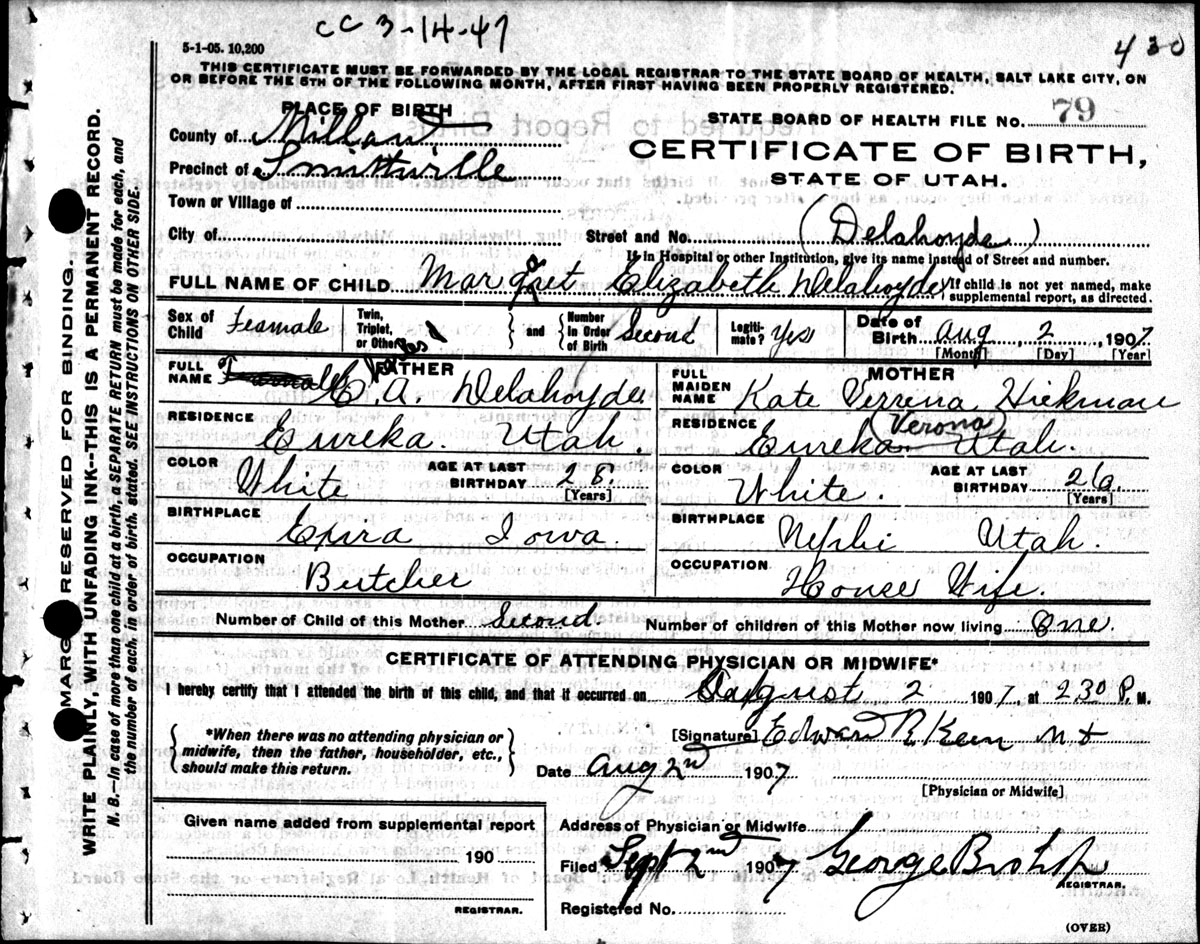 CC 3-14-47
430
5-1-05. 10,200
THIS CERTIFICATE MUST BE FORWARDED BY THE LOCAL REGISTRAR TO THE STATE BOARD OF HEALTH, SALT LAKE CITY, ON
OR BEFORE THE 5TH OF THE FOLLOWING MONTH, AFTER FIRST HAVING BEEN PROPERLY REGISTERED.
PLACE OF BIRTH
STATE BOARD OF HEALTH FILE NO. 79
County of Millard
CERTIFICATE OF BIRTH,
Precinct of Smithville
STATE OF UTAH.
Town or Village of
City of
Street and No. (Delahoyde)
If in Hospital or other Institution, give its name instead of Street and number.
FULL NAME OF CHILD Margaret Elizabeth Delahoyde
If child is not yet named, make
supplemental report, as directed.
Sex of Child Feamale
Twin, Triplet, or Other
and Number in Order of Birth Second
Legiti-mate? Yes
Date of Birth Aug 2 1907
[Month] [Day] [Year]
FATHER
FULL NAME C. A. Delahoyde
RESIDENCE Eureka. Utah.
COLOR White
AGE AT LAST BIRTHDAY 28.
[Years]
BIRTHPLACE Exira Iowa.
OCCUPATION Butcher
MOTHER
FULL MAIDEN NAME Kate Verrena Hickman
(Verona)
RESIDENCE Eureka Utah.
COLOR White.
AGE AT LAST BIRTHDAY 26.
[Years]
BIRTHPLACE Nephi Utah.
OCCUPATION House Wife.
Number of Child of this Mother Second. Number of children of this Mother now living One.
CERTIFICATE OF ATTENDING PHYSICIAN OR MIDWIFE*
I hereby certify that I attended the birth of this child, and that it occurred on August 2 1907, at 230 P. M.
*When there was no attending physician or
midwife, then the father, householder, etc.,
should make this return.
[Signature] Edward R Keen
Date Aug 2nd 1907
[Physician or Midwife]
Given name added from supplemental report
190
REGISTRAR.
Address of Physician or Midwife
Filed Sept 2nd 1907 George Bishop
REGISTRAR.
Registered No.
(OVER)
MARGIN RESERVED FOR BINDING.
WRITE PLAINLY, WITH UNFADING INK--THIS IS A PERMANENT RECORD.
N. B.--In case of more than one child at a birth, a SEPARATE RETURN must be made for each, and
the number of each, in order of birth, stated. SEE INSTRUCTIONS ON OTHER SIDE.